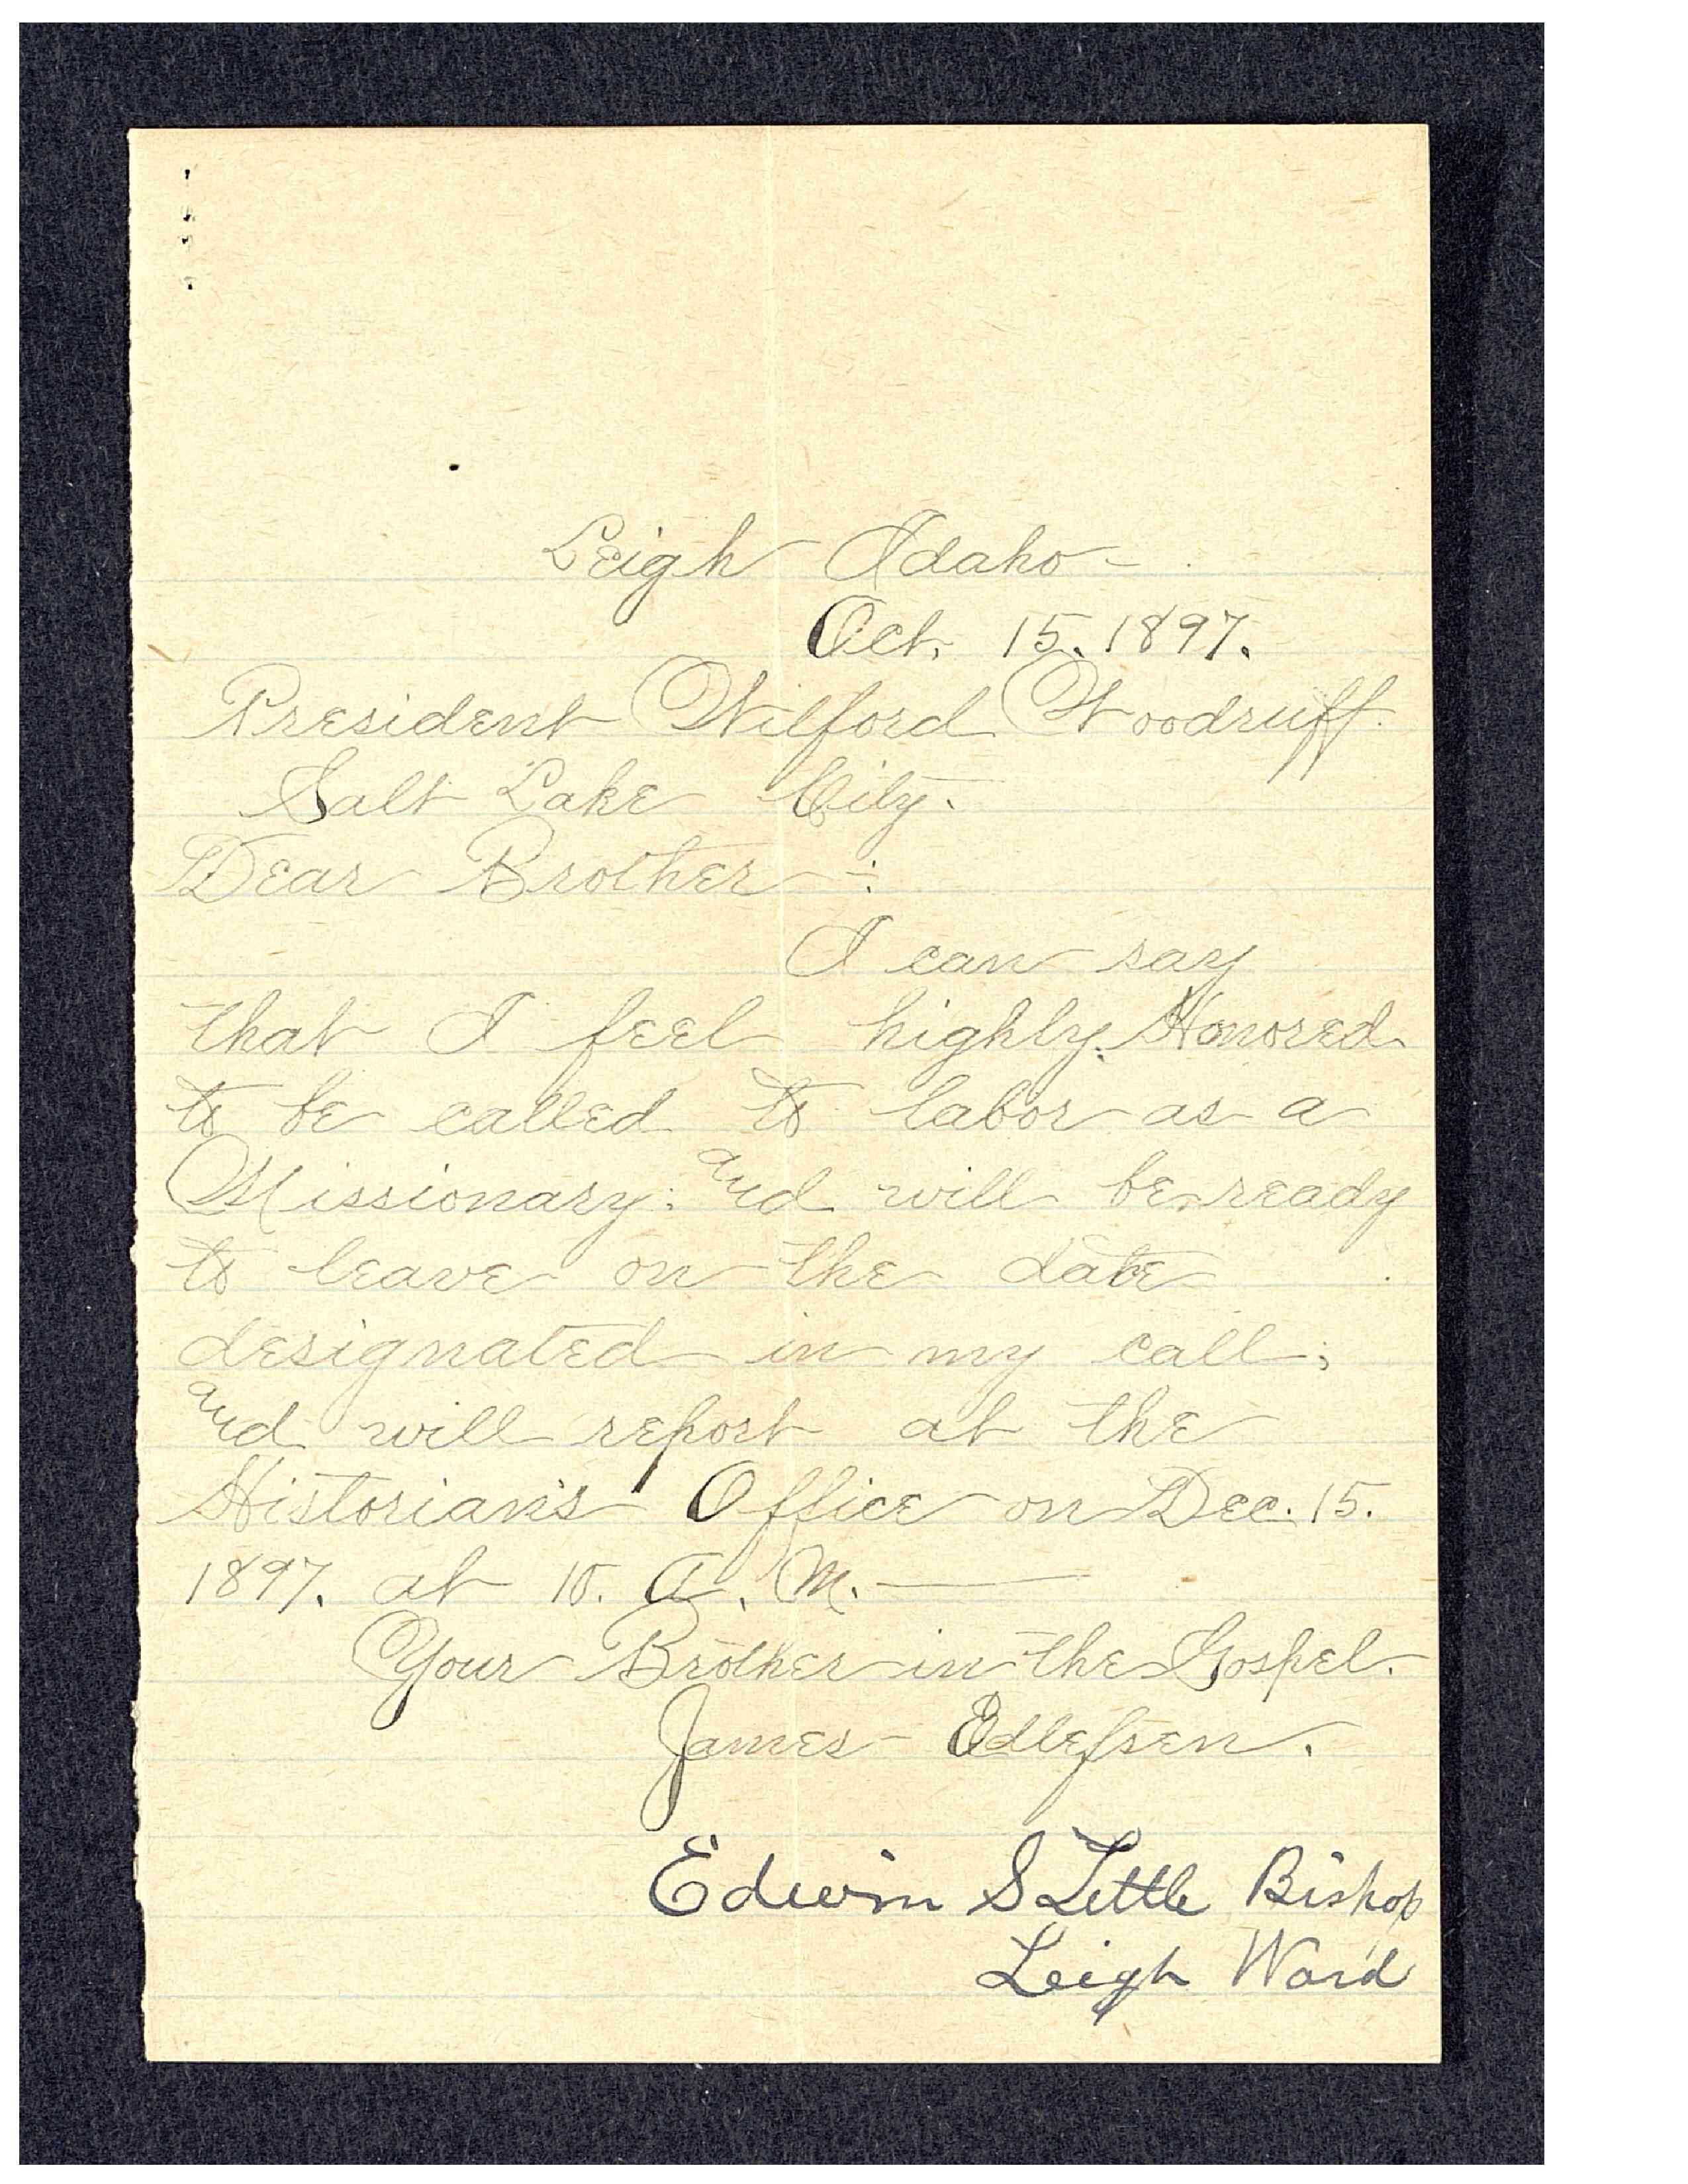 Leigh Idaho -
Oct. 15. 1897.
President Wilford Woodruff.
Salt Lake City.
Dear Brother -:
I can say
that I feel highly. Honored
to be called to labor as a
Missionary: and will be ready
to leave on the date
designated in my call;
and will report at the
Historian's Office on Dec. 15.
1897. at 10. A. M. —
Your Brother in the Gospel.
James Edlefsen.
Edwin S Little Bishop
Leigh Ward